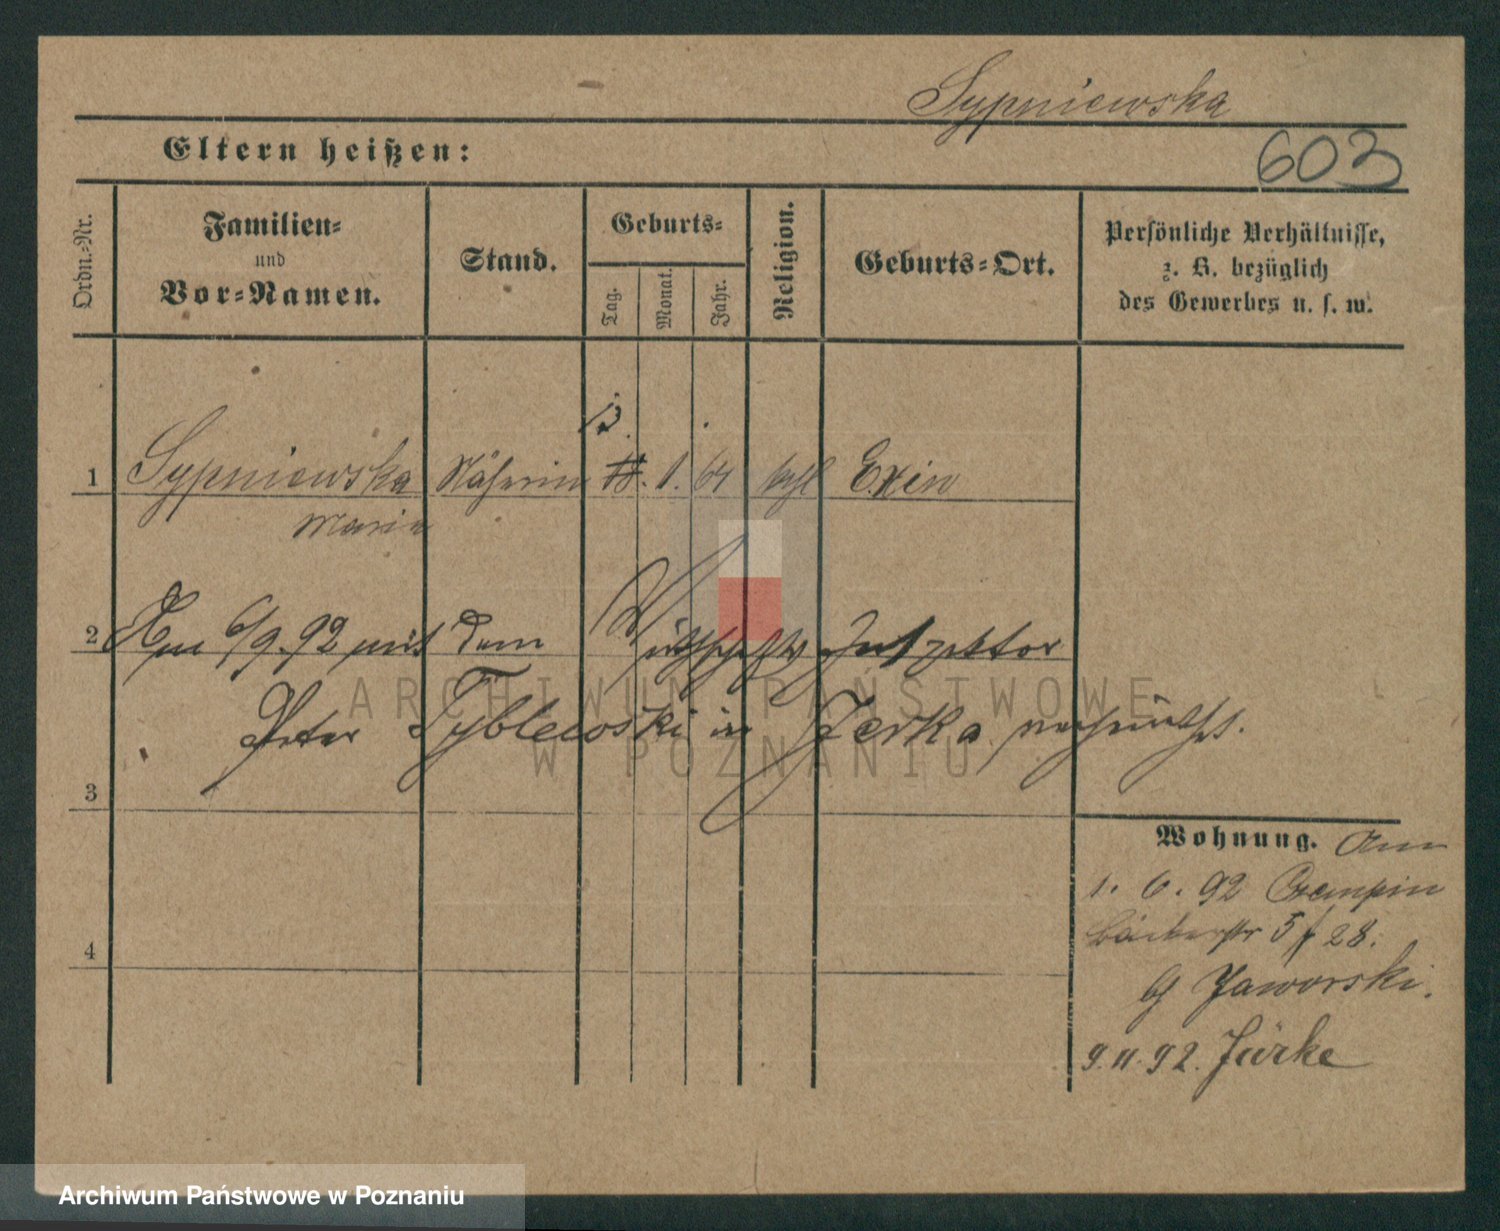 Sypniewska
Eltern heißen:
603
Ordn.-Nr.
Familien-
und
Vor-Namen.
Stand.
Geburts-
Tag.
Monat.
Jahr.
Religion.
Geburts-Ort.
Persönliche Verhältnisse,
z. B. bezüglich
des Gewerbes u. s. w.
13.
1 Sypniewska Näherin 18. 1. 64 kath Exin
Maria
2 Am 6/9. 92 mit dem Wirthschafts Inspektor
Peter Tyblewski in Jerka verheirathet.
3
Wohnung. Am
1. 6. 92 Czempin
Bäckerstr 5 / 28.
b/ Jaworski.
4
9.11.92. Jürke
ARCHIWUM PAŃSTWOWE
W POZNANIU
Archiwum Państwowe w Poznaniu